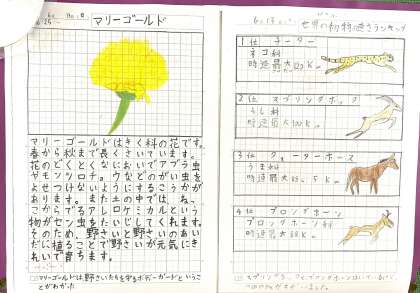 マリーゴールド
マリーゴールドはきく科の花です。
春から秋まで長くさいています。
花のどくとくなにおいでアブラ虫
やモンシロチョウなどのがい虫を
よせつけないようにするこうかが
あります。また土の中では、ね
こからでるアレロケミカルという
物がセン虫をたいじしてくれます。
そのため、野さいと野さいのあい
だに植ることで野さいが元気にき
れいで育ちます。
マリーゴールドは、野さいたちを守るボディーガードというこ
とがわかった
世界の動物の速さランキング
1位 チーター
ネコ科
時速最大120km
2位 スプリングボック
うし科
時速最大100km
3位 クォーターホース
うま科
時速最大88.5km
4位 プロングホーン
プロングホーン科
時速最大88km